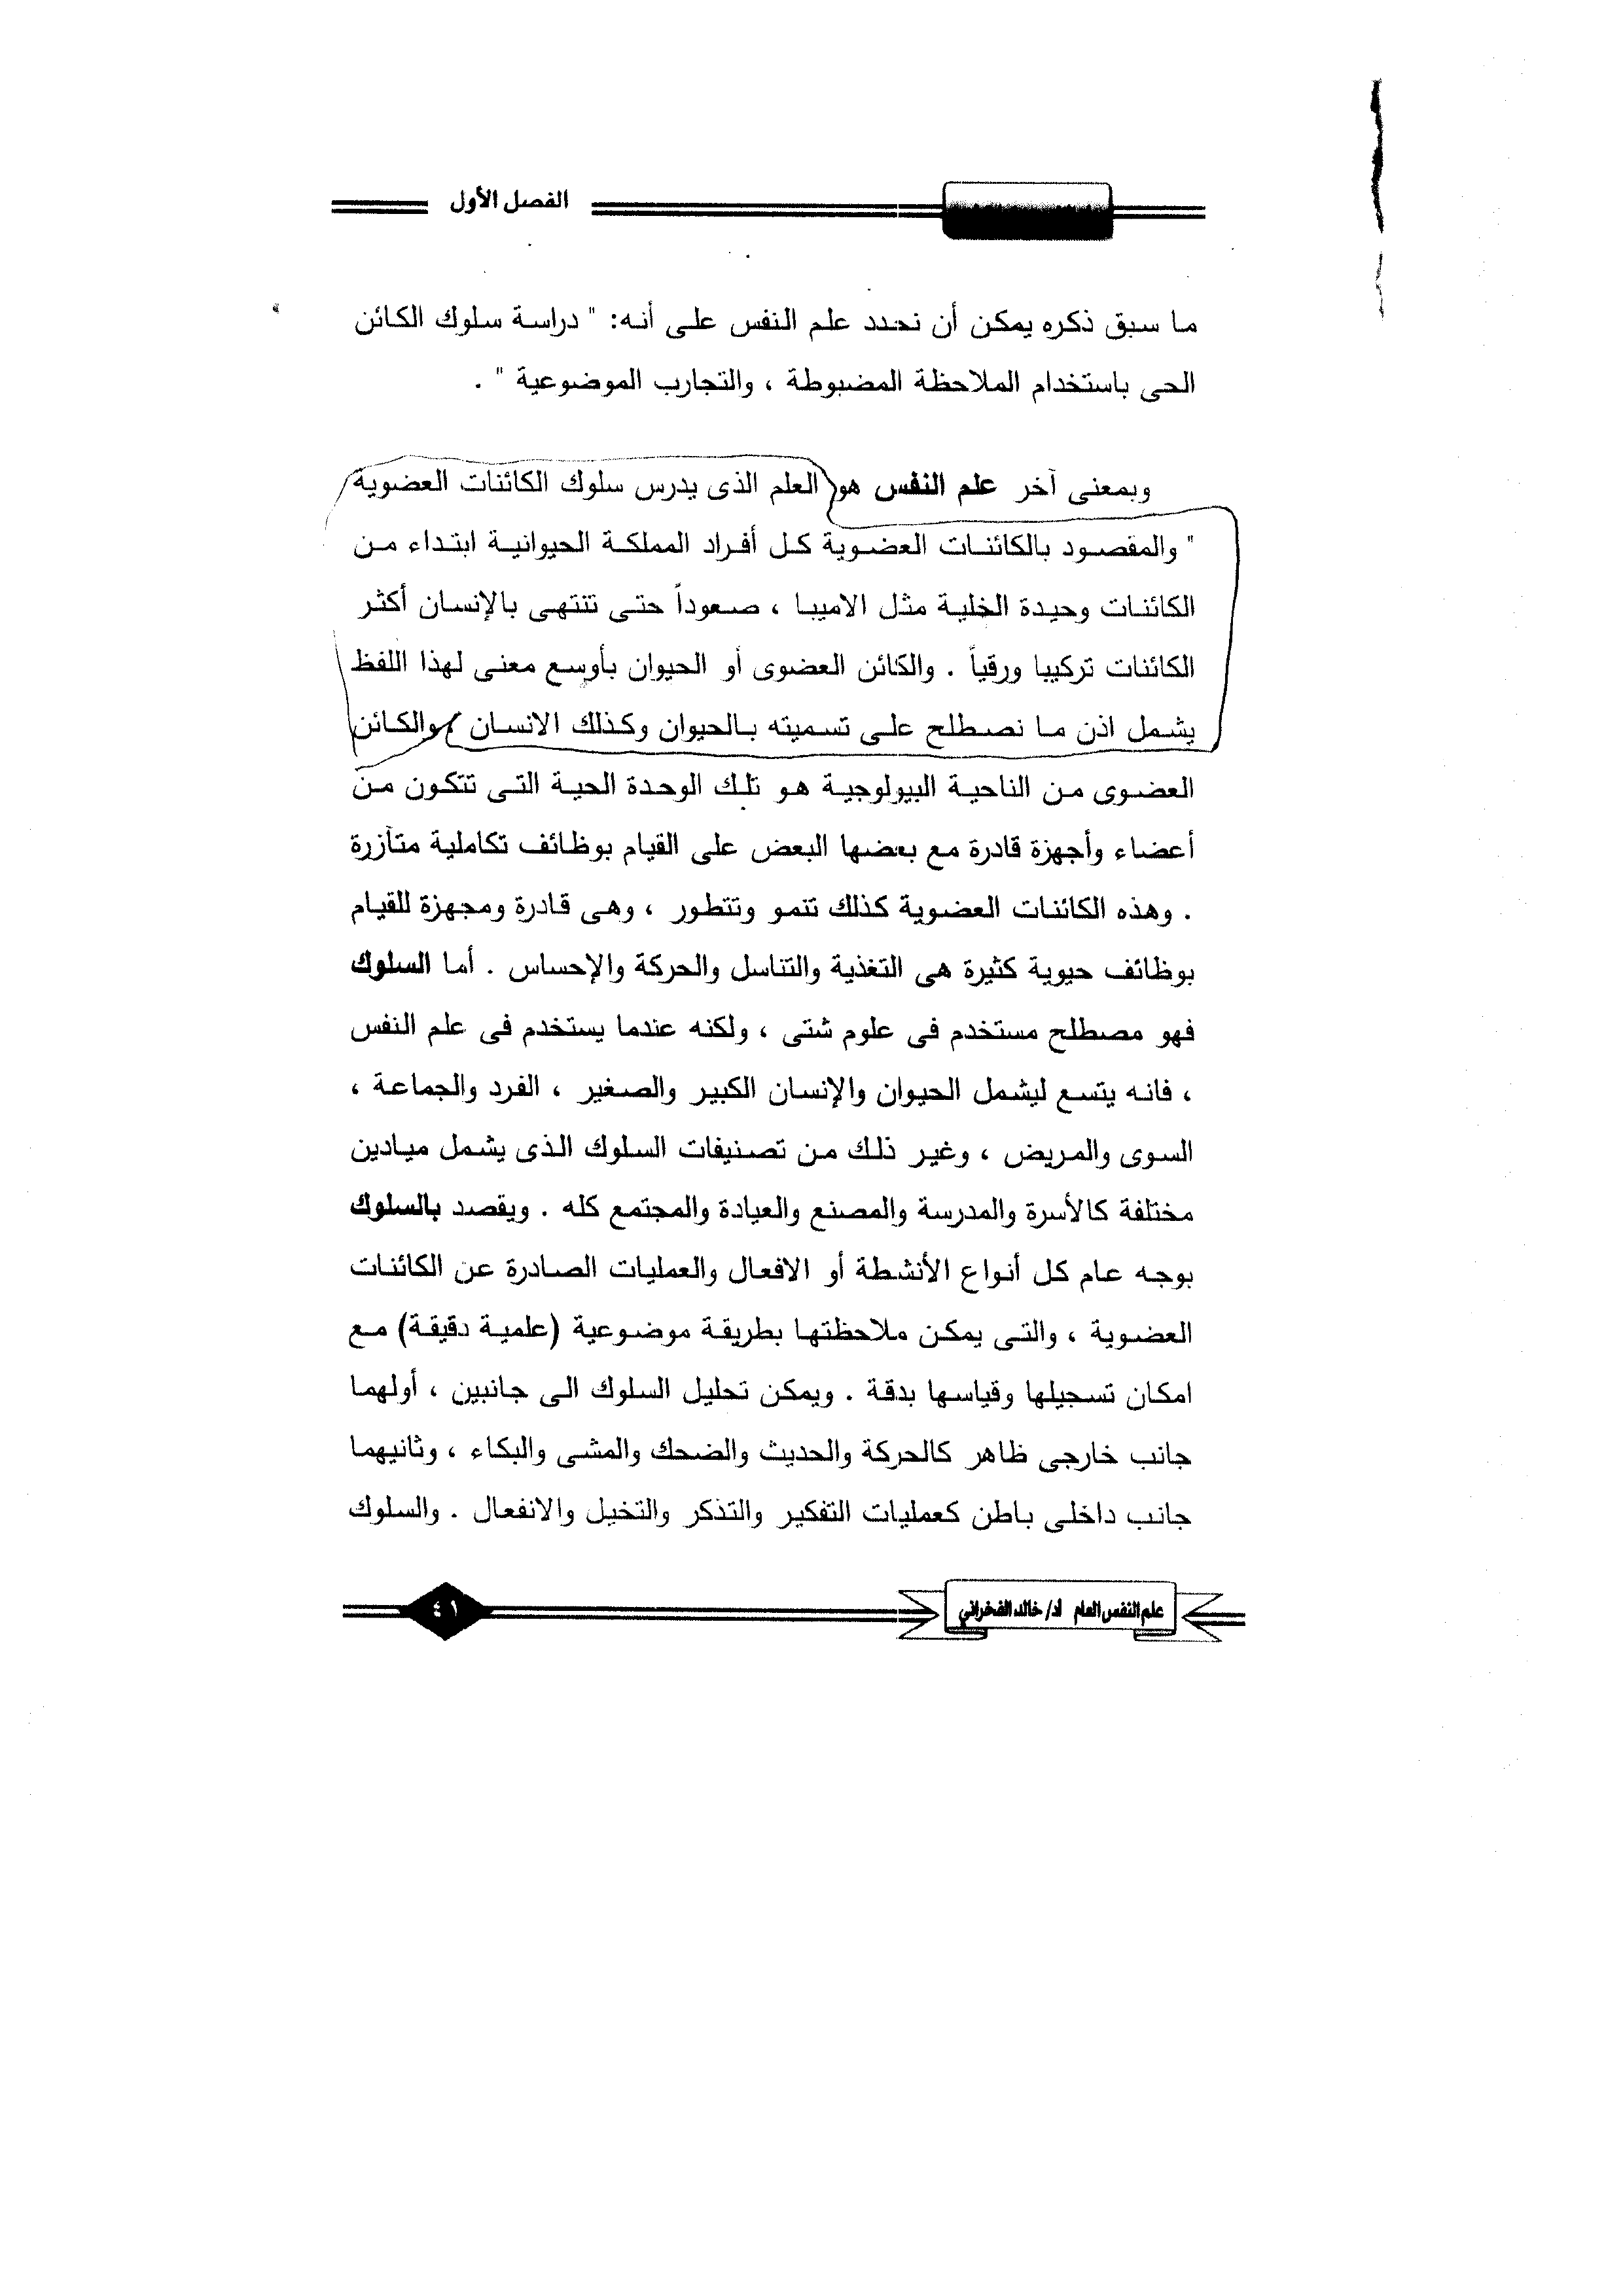 الفصل الأول
ما سبق ذكره يمكن أن نحدد علم النفس على أنه: " دراسة سلوك الكائن
الحى باستخدام الملاحظة المضبوطة ، والتجارب الموضوعية " .
وبمعنى آخر علم النفس هو العلم الذى يدرس سلوك الكائنات العضوية
" والمقصود بالكائنات العضوية كل أفراد المملكة الحيوانية ابتداء من
الكائنات وحيدة الخلية مثل الاميبا ، صعوداً حتى تنتهى بالإنسان أكثر
الكائنات تركيبا ورقياً . والكائن العضوى أو الحيوان بأوسع معنى لهذا اللفظ
يشمل اذن ما نصطلح على تسميته بالحيوان وكذلك الانسان والكائن
العضوى من الناحية البيولوجية هو تلك الوحدة الحية التى تتكون من
أعضاء وأجهزة قادرة مع بعضها البعض على القيام بوظائف تكاملية متآزرة
. وهذه الكائنات العضوية كذلك تنمو وتتطور ، وهى قادرة ومجهزة للقيام
بوظائف حيوية كثيرة هى التغذية والتناسل والحركة والإحساس . أما السلوك
فهو مصطلح مستخدم فى علوم شتى ، ولكنه عندما يستخدم فى علم النفس
، فانه يتسع ليشمل الحيوان والإنسان الكبير والصغير ، الفرد والجماعة ،
السوى والمريض ، وغير ذلك من تصنيفات السلوك الذى يشمل ميادين
مختلفة كالأسرة والمدرسة والمصنع والعيادة والمجتمع كله . ويقصد بالسلوك
بوجه عام كل أنواع الأنشطة أو الافعال والعمليات الصادرة عن الكائنات
العضوية ، والتى يمكن ملاحظتها بطريقة موضوعية (علمية دقيقة) مع
امكان تسجيلها وقياسها بدقة . ويمكن تحليل السلوك الى جانبين ، أولهما
جانب خارجى ظاهر كالحركة والحديث والضحك والمشى والبكاء ، وثانيهما
جانب داخلى باطن كعمليات التفكير والتذكر والتخيل والانفعال . والسلوك
علم النفس العام أد/ خالد الفخراني
٤١